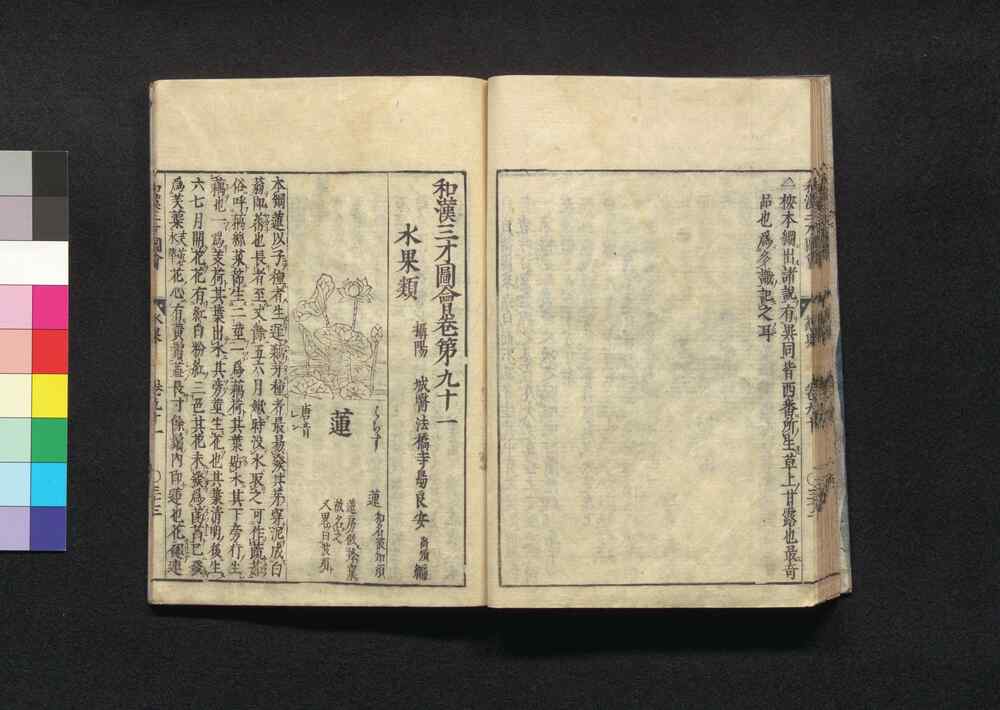 △按本綱出諸說有異同皆西番所生草上甘露也最奇
品也爲多識記之耳
和漢三才圖會卷第九十一
攝陽 城醫法橋寺島良安 尚順 編
水果類
蓮
唐音
レン
蓮
本綱蓮以子種者生遲藕芽種者最易發其芽穿泥成白
蒻卽蔤也長者至丈餘五六月嫩時沒水取之可作蔬茹
俗呼藕絲菜節生二莖一爲藕荷其葉貼水其下旁行生
藕也一爲芰荷其葉出水其旁莖生花也其葉清明後生
六七月開花花有紅白粉紅三色其花未發爲菡萏已發
爲芙蕖花心有黃鬚蕋長寸餘鬚內卽蓮也花褪連
和漢三才圖會
水果
卷九十一